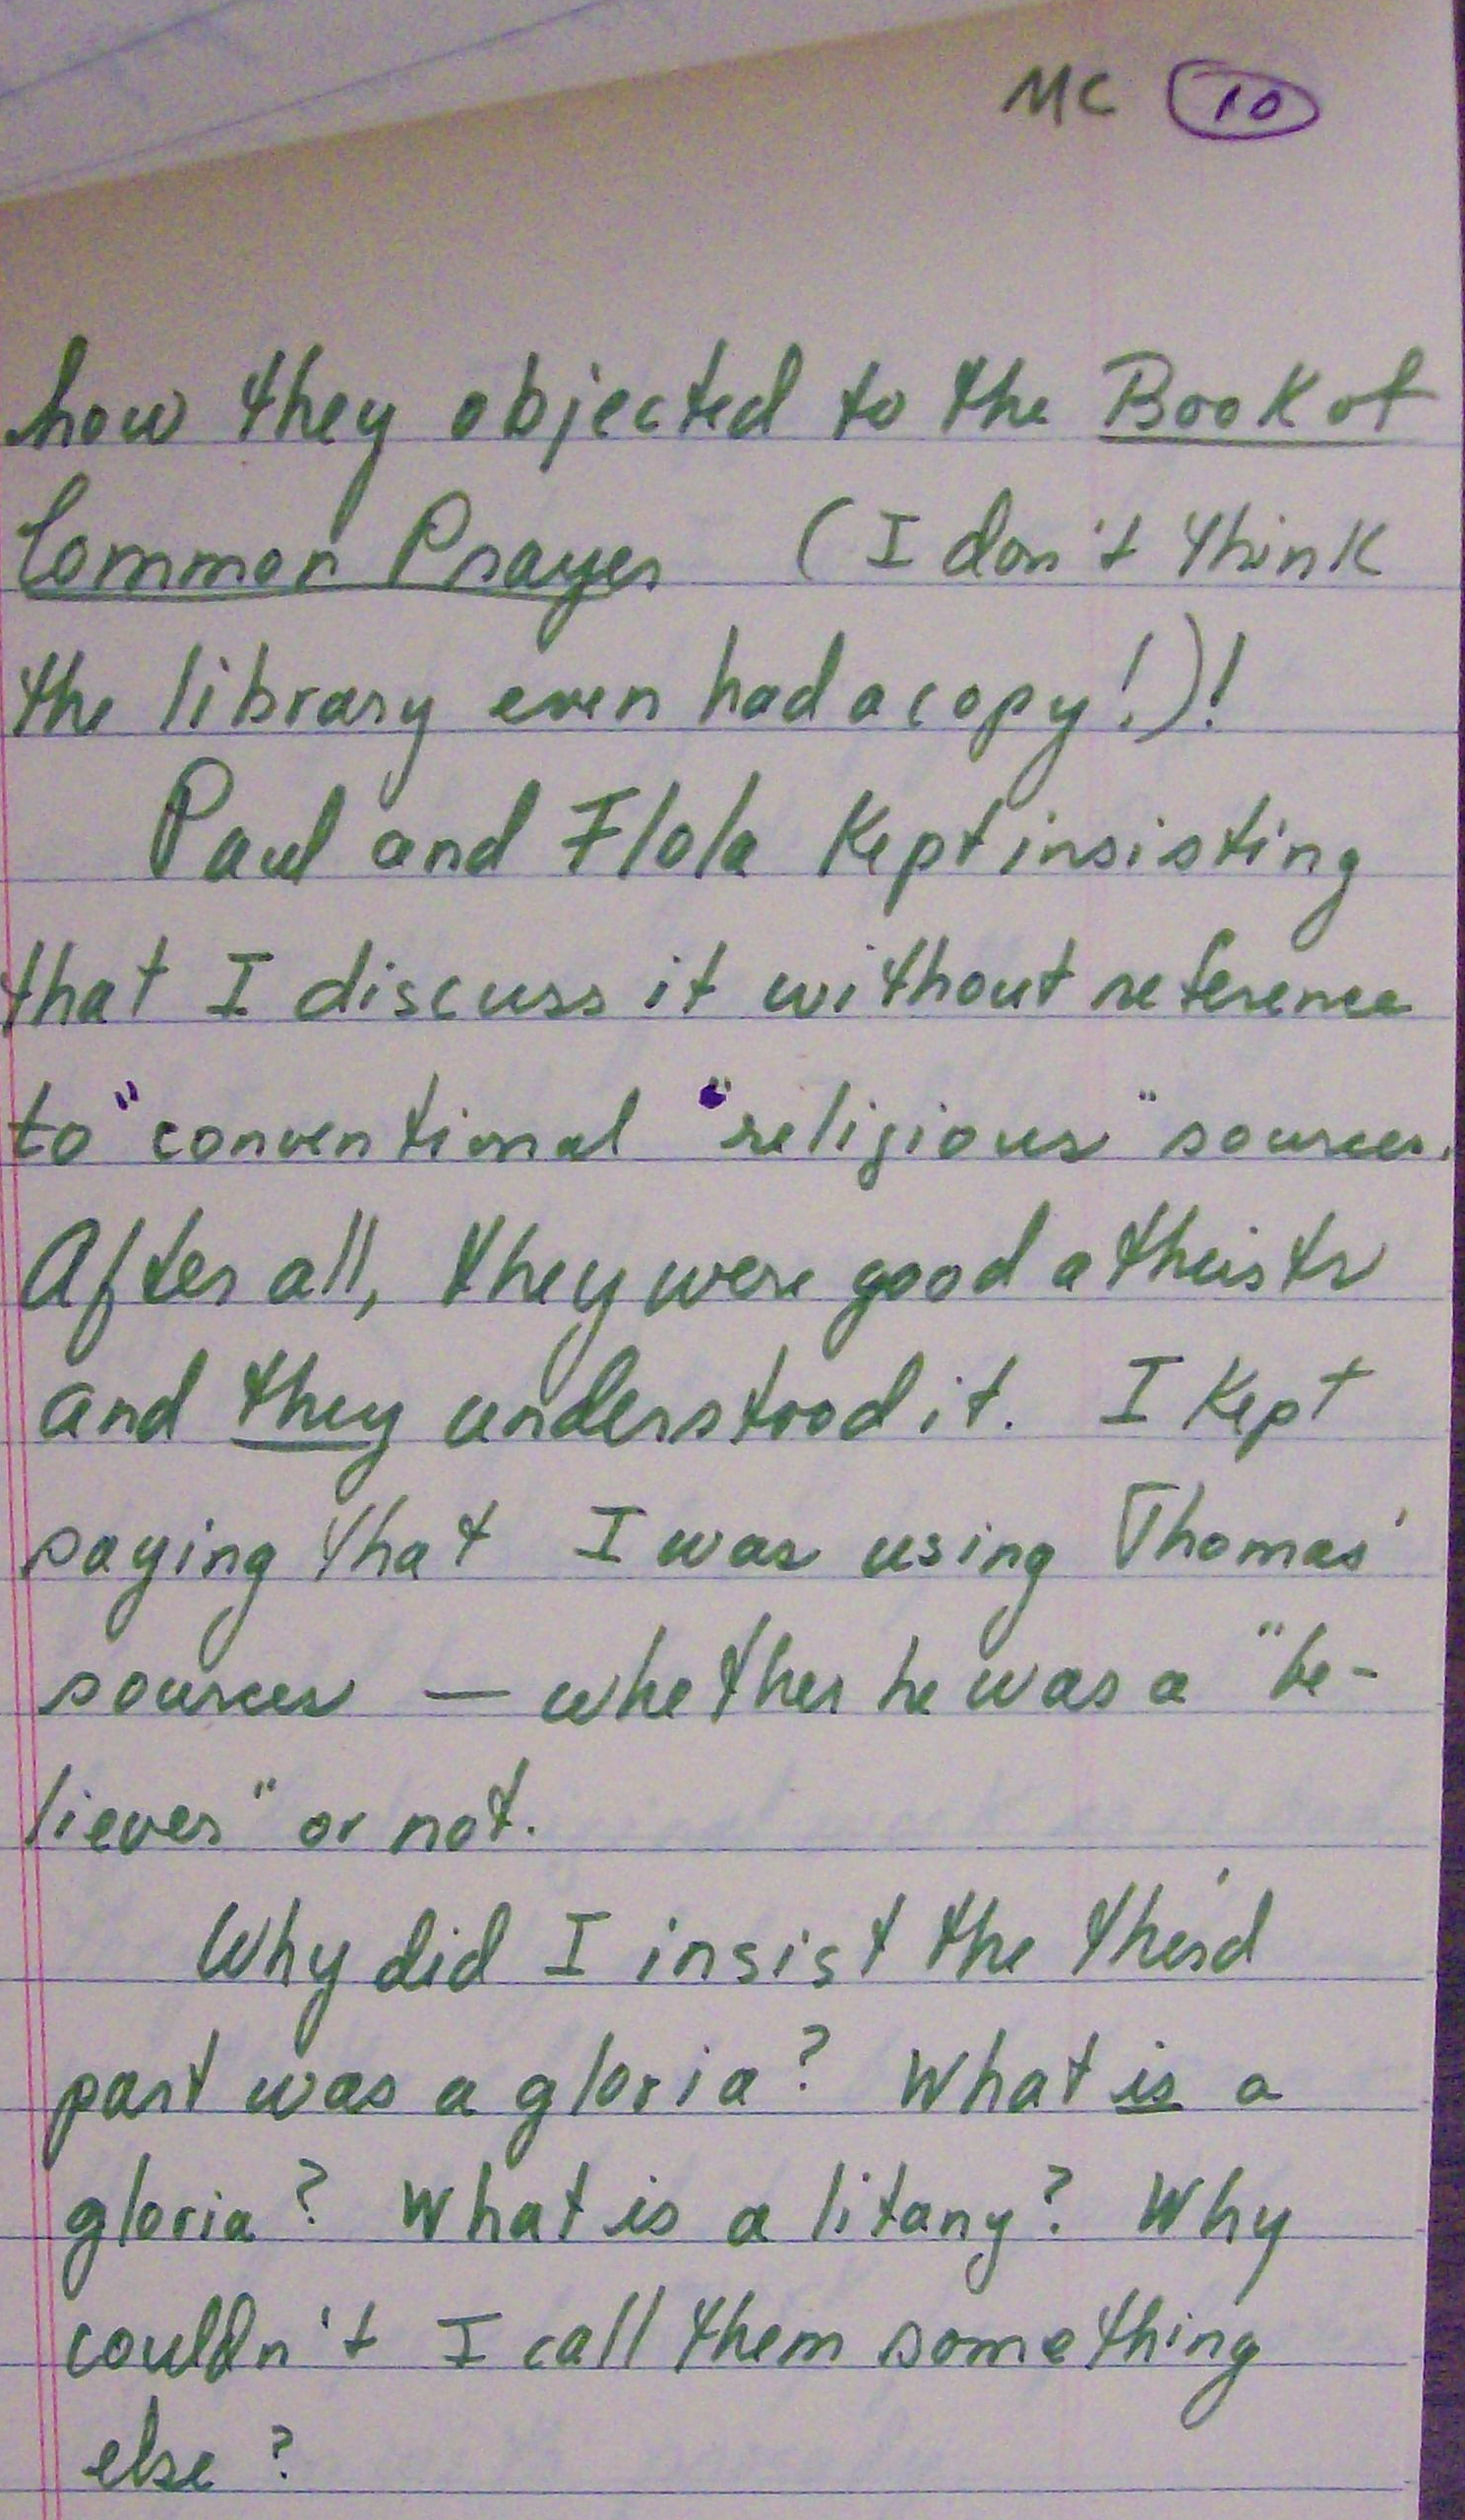 MC 10
how they objected to the Book of
Common Prayer (I don't think
the library even had a copy!)!
Paul and Flola kept insisting
that I discuss it without reference
to "conventional "religious" sources.
After all, they were good atheists
and they understood it. I kept
saying that I was using Thomas'
sources — whether he was a "be-
liever" or not.
Why did I insist the third
part was a gloria? What is a
gloria? What is a litany? Why
couldn't I call them something
else?